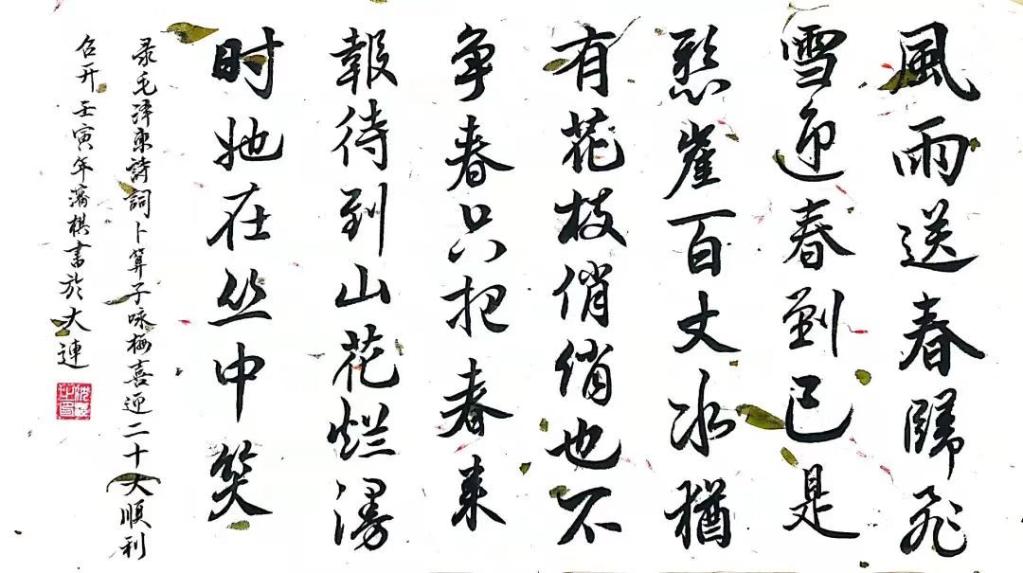 風雨送春歸飛
雪迎春到已是
懸崖百丈冰猶
有花枝俏俏也不
争春只把春来
報待到山花烂漫
时她在丛中笑
录毛泽东詩詞卜算子咏梅喜迎二十大順利
召开壬寅年濤棋書於大連